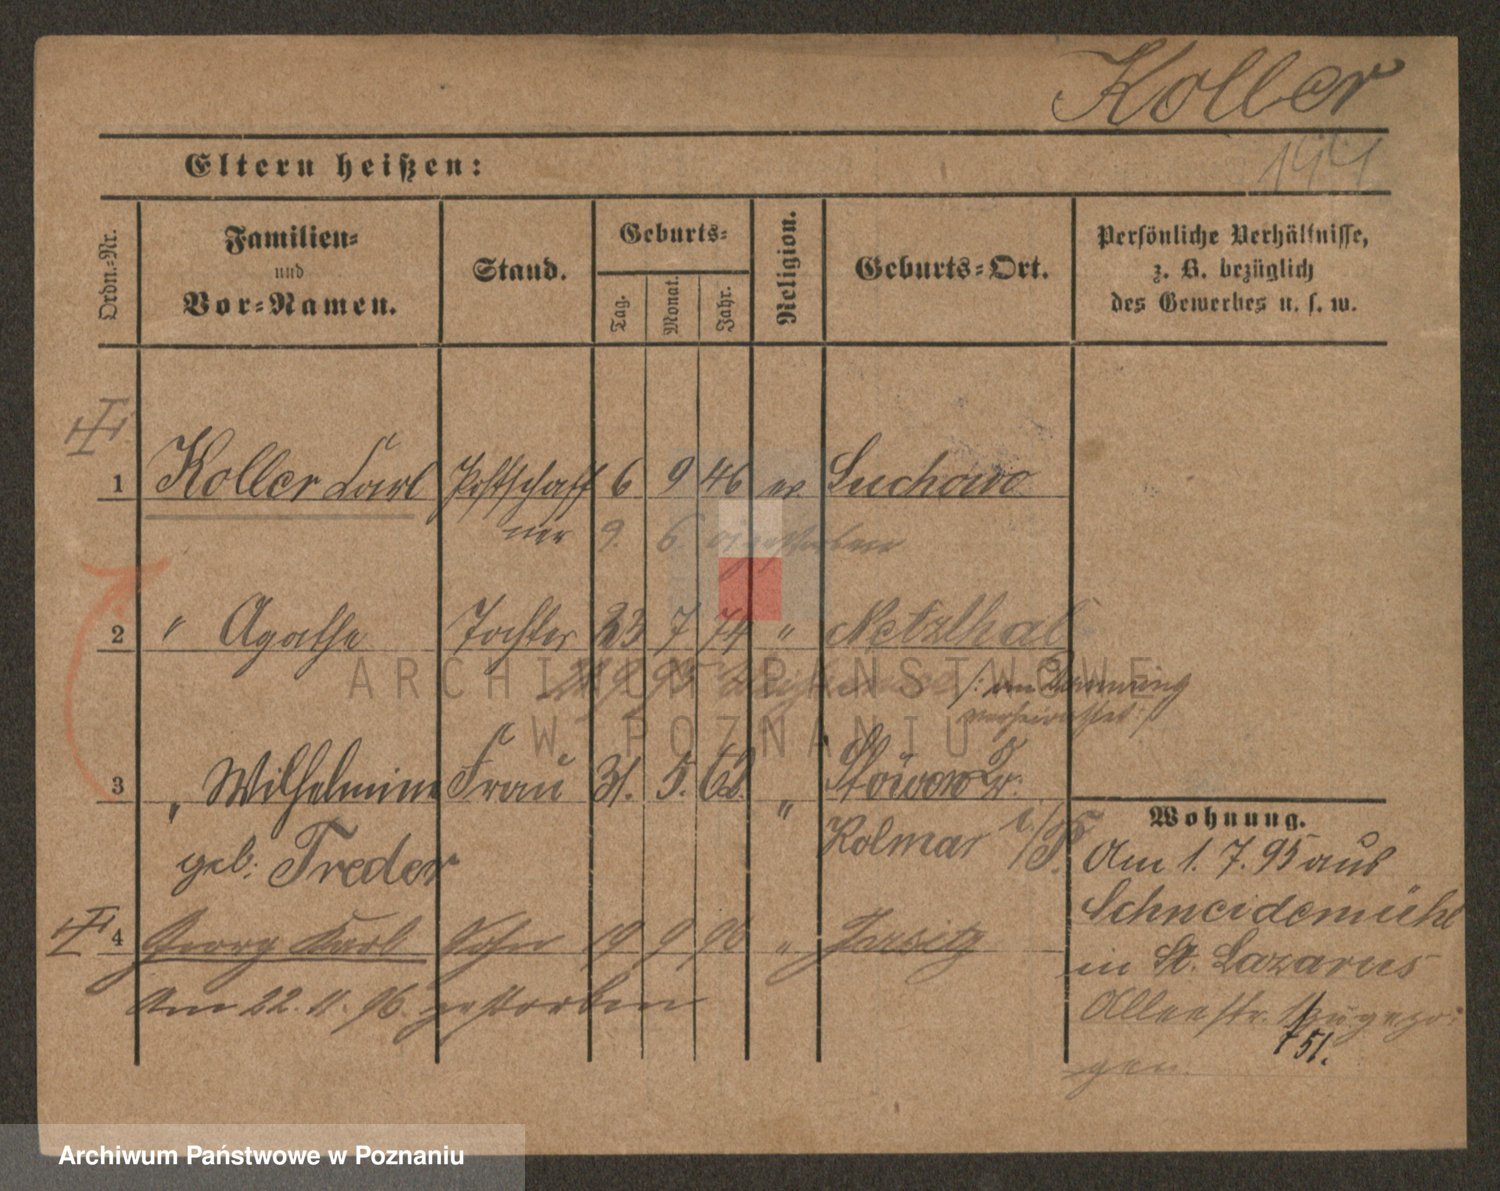 Koller
144
Eltern heißen:
Ordn.-Nr.
Familien-
und
Vor-Namen.
Stand.
Geburts-
Tag.
Monat.
Jahr.
Religion.
Geburts-Ort.
Persönliche Verhältnisse,
z. B. bezüglich
des Gewerbes u. s. w.
1 Koller Carl Postschaff 6 9 46 ev Suchowo
ner 9. 6. gestorben
2 " Agathe Tochter 23 7 74 " Netzthal
9 95 /: am
verheirathet :/
3 " Wilhelmine Frau 31. 5. 62. " Stöwen Kr.
geb: Treder Kolmar i/P.
4 Georg Karl Sohn 19 9 96 " Jersitz
Am 22. 11. 96. gestorben
Wohnung.
Am 1. 7. 95 aus
Schneidemühl
in St. Lazarus
Alleestr. 1 zugezo-
gen.
51.
ARCHIWUM PAŃSTWOWE
W POZNANIU
Archiwum Państwowe w Poznaniu